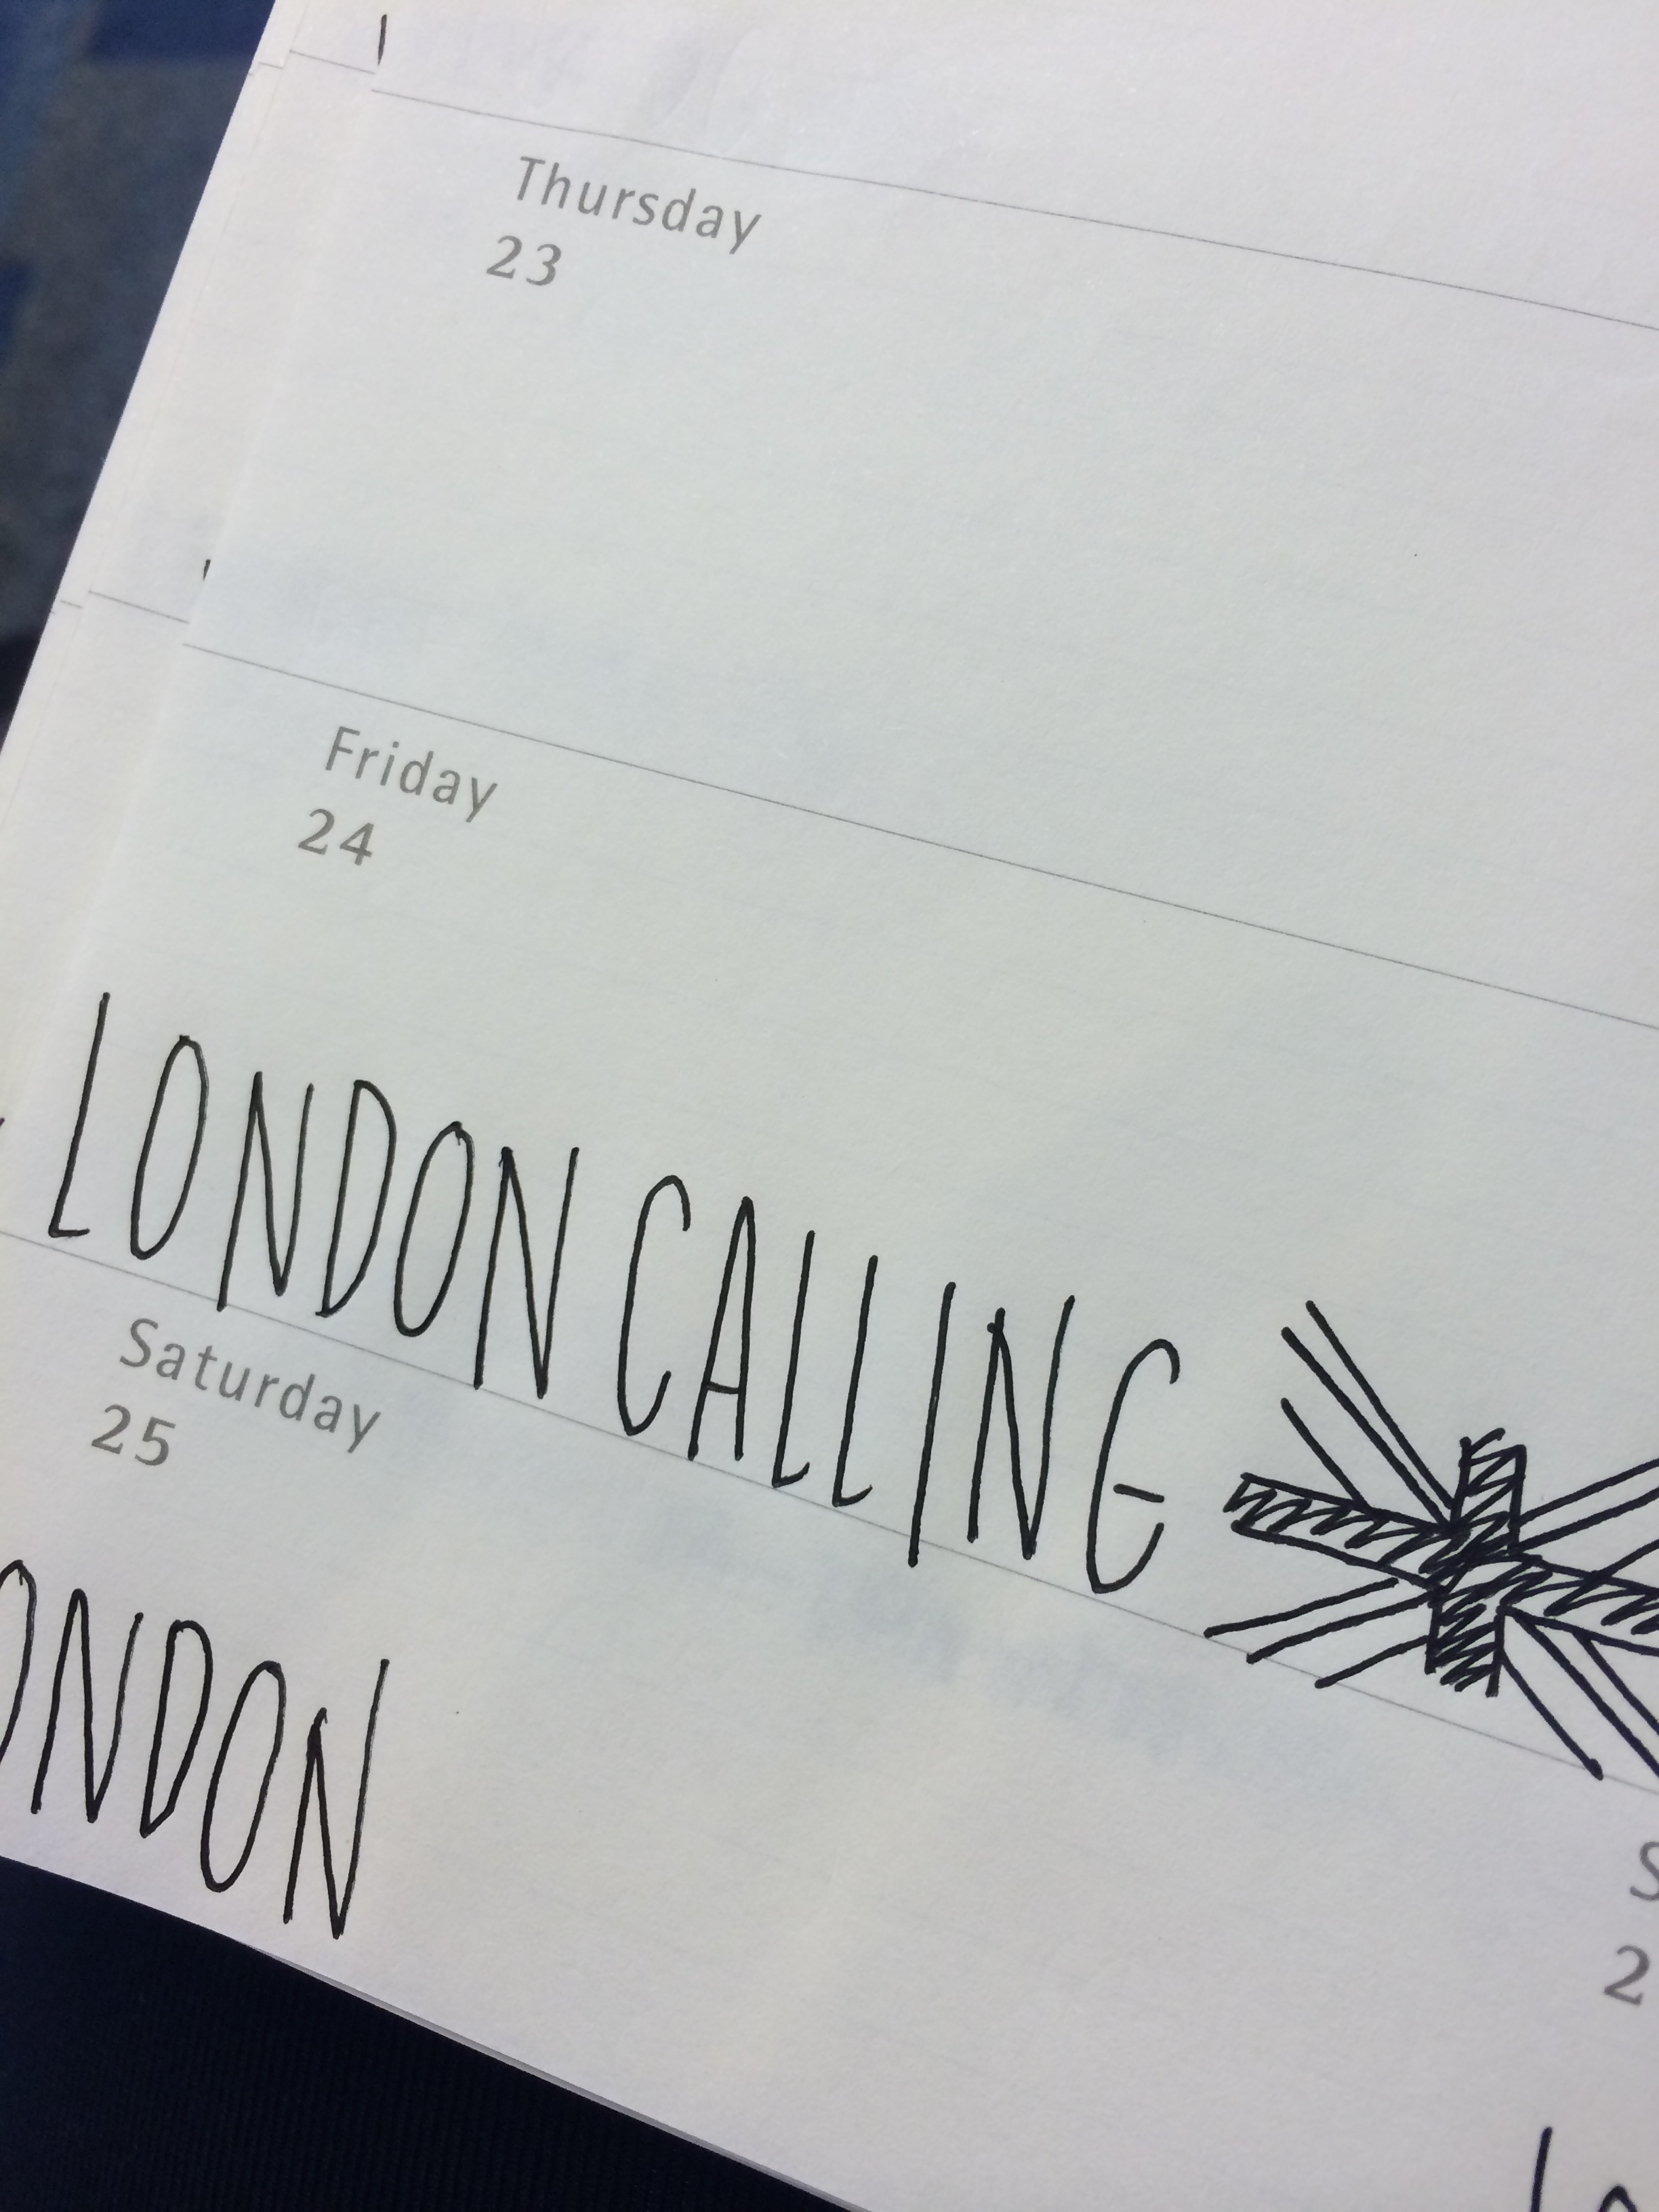 Thursday
23
Friday
24
LONDON CALLING
Saturday
25
ONDON
S
2